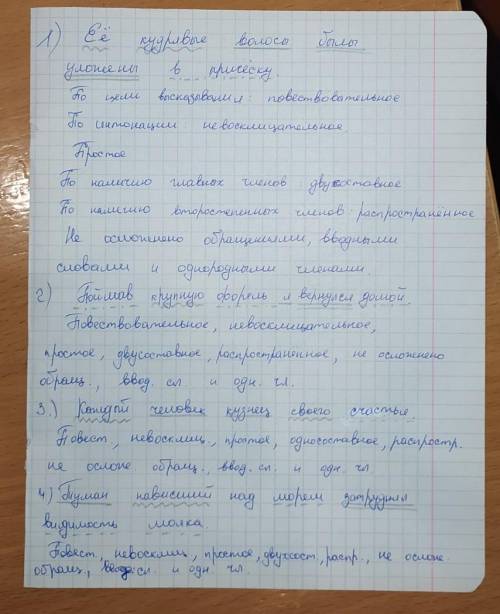 1) Её кудрявые волосы были
уложены в причёску.
По цели высказывания: повествовательное
По интонации: невосклицательное
Простое
По наличию главных членов: двусоставное
По наличию второстепенных членов: распространённое
Не осложнено обращениями, вводными
словами и однородными членами.
2) Поймав крупную форель я вернулся домой
Повествовательное, невосклицательное,
простое, двусоставное, распространенное, не осложнено
обращ., ввод. сл. и одн. чл.
3.) Каждый человек кузнец своего счастья
Повест., невосклиц., простое, односоставное, распростр.
не ослож обращ., ввод. сл. и одн. чл
4) Туман нависший над морем затруднял
видимость маяка.
Повест, невосклиц, простое, двусост., распр., не ослож.
обращ., ввод сл. и одн. чл.